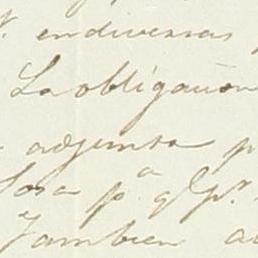 en diversas
La obligacion
adjunta p
Sosa pª q
Tambien a